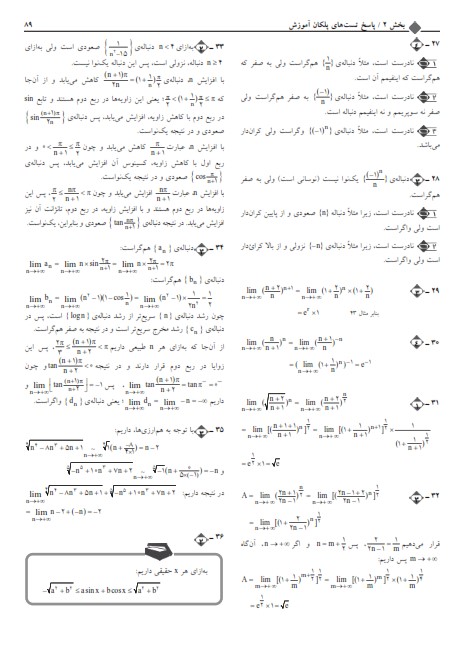 بخش ۲ / پاسخ تست‌های پلکان آموزش
۸۹
۲۷ -
۱ نادرست است، مثلاً دنباله‌ی {1/n} همگراست ولی به صفر که
هم‌گراست که اینفیمم آن است.
۲ نادرست است، مثلاً دنباله‌ی {(-1)^n/n} به صفر هم‌گراست ولی
صفر نه سوپریمم و نه اینفیمم دنباله است.
۳ نادرست است، مثلاً دنباله‌ی {(-1)^n} واگراست ولی کران‌دار
می‌باشد.
۲۸ - دنباله‌ی {(-1)^n/n} یکنوا نیست (نوسانی است) ولی به صفر
هم‌گراست.
۱ نادرست است، زیرا مثلاً دنباله {n} صعودی و از پایین کران‌دار
است ولی واگراست.
۲ نادرست است، زیرا مثلاً دنباله‌ی {-n} نزولی و از بالا کران‌دار
است ولی واگراست.
۲۹ - lim n→+∞ ((n+2)/n)^(n+1) = lim n→+∞ (1+2/n)^n × (1+2/n)
= e^2 × 1 بنابر مثال ۴۳
۳۰ - lim n→+∞ (n/(n+1))^n = lim n→+∞ ((n+1)/n)^-n
= (lim n→+∞ (1+1/n)^n)^-1 = e^-1
۳۱ - lim n→+∞ (√((n+2)/(n+1)))^n = lim n→+∞ ((n+2)/(n+1))^(n/2)
= lim n→+∞ [((n+1+1)/(n+1))^n]^(1/2) = lim n→+∞ [(1+1/(n+1))^(n+1)]^(1/2) × 1/(1+1/(n+1))^(1/2)
= e^(1/2) × 1 = √e
۳۲ - A = lim n→+∞ ((2n+1)/(2n-1))^(n/2) = lim n→+∞ [((2n-1+2)/(2n-1))^n]^(1/2)
= lim n→+∞ [(1+2/(2n-1))^n]^(1/2)
قرار می‌دهیم 2/(2n-1) = 1/m، پس n = m+1/2 و اگر n→+∞، آن‌گاه
m→+∞ پس داریم:
A = lim m→+∞ [(1+1/m)^(m+1/2)]^(1/2) = lim m→+∞ [(1+1/m)^m]^(1/2) × (1+1/m)^(1/4)
= e^(1/2) × 1 = √e
۳۳ - به‌ازای n<4 دنباله‌ی {1/(n^2-15)} صعودی است ولی به‌ازای
n≥4 دنباله، نزولی است، پس این دنباله یکنوا نیست.
با افزایش n، دنباله‌ی (n+1)π/2n = (1+1/n)π/2 کاهش می‌یابد و از آن‌جا
که π/2<(1+1/n)π/2≤π؛ یعنی این زاویه‌ها در ربع دوم هستند و تابع sin
در ربع دوم با کاهش زاویه، افزایش می‌یابد، پس دنباله‌ی {sin (n+1)π/2n}
صعودی و در نتیجه یکنواست.
با افزایش n، عبارت π/(n+1) کاهش می‌یابد و چون 0<π/(n+1)≤π/2 و در
ربع اول با کاهش زاویه، کسینوس آن افزایش می‌یابد، پس دنباله‌ی
{cos π/(n+1)} صعودی و در نتیجه یکنواست.
با افزایش n، عبارت nπ/(n+1) افزایش می‌یابد و چون π/2≤nπ/(n+1)<π پس این
زاویه‌ها در ربع دوم هستند و با افزایش زاویه، در ربع دوم، تانژانت آن نیز
افزایش می‌یابد. در نتیجه دنباله‌ی {tan nπ/(n+1)} صعودی و بنابراین، یکنواست.
۳۴ - دنباله‌ی {a_n} هم‌گراست:
lim n→+∞ a_n = lim n→+∞ n×sin 2π/(n+1) = lim n→+∞ n×2π/(n+1) = 2π
دنباله‌ی {b_n} هم‌گراست:
lim n→+∞ b_n = lim n→+∞ (n^2-1)(1-cos 1/n) = lim n→+∞ (n^2-1)×1/2n^2 = 1/2
چون رشد دنباله‌ی {n} سریع‌تر از رشد دنباله‌ی {log n} است، پس در
دنباله‌ی {c_n} رشد مخرج سریع‌تر است و در نتیجه به صفر هم‌گراست.
از آن‌جا که به‌ازای هر n طبیعی داریم 2π/3≤(n+1)π/(n+2)<π، پس این
زوایا در ربع دوم قرار دارند و در نتیجه tan (n+1)π/(n+2)<0 و چون
lim n→+∞ tan (n+1)π/(n+2) = tan π^- = 0^-، پس lim n→+∞ [tan (n+1)π/(n+2)] = -1 و
داریم lim n→+∞ d_n = lim n→+∞ -n = -∞؛ یعنی دنباله‌ی {d_n} واگراست.
۳۵ - با توجه به هم‌ارزی‌ها، داریم:
و
در نتیجه داریم:
= lim n→+∞ n-2+(-n) = -2
۳۶ -
به‌ازای هر x حقیقی داریم:
-√(a^2+b^2) ≤ a sin x + b cos x ≤ √(a^2+b^2)